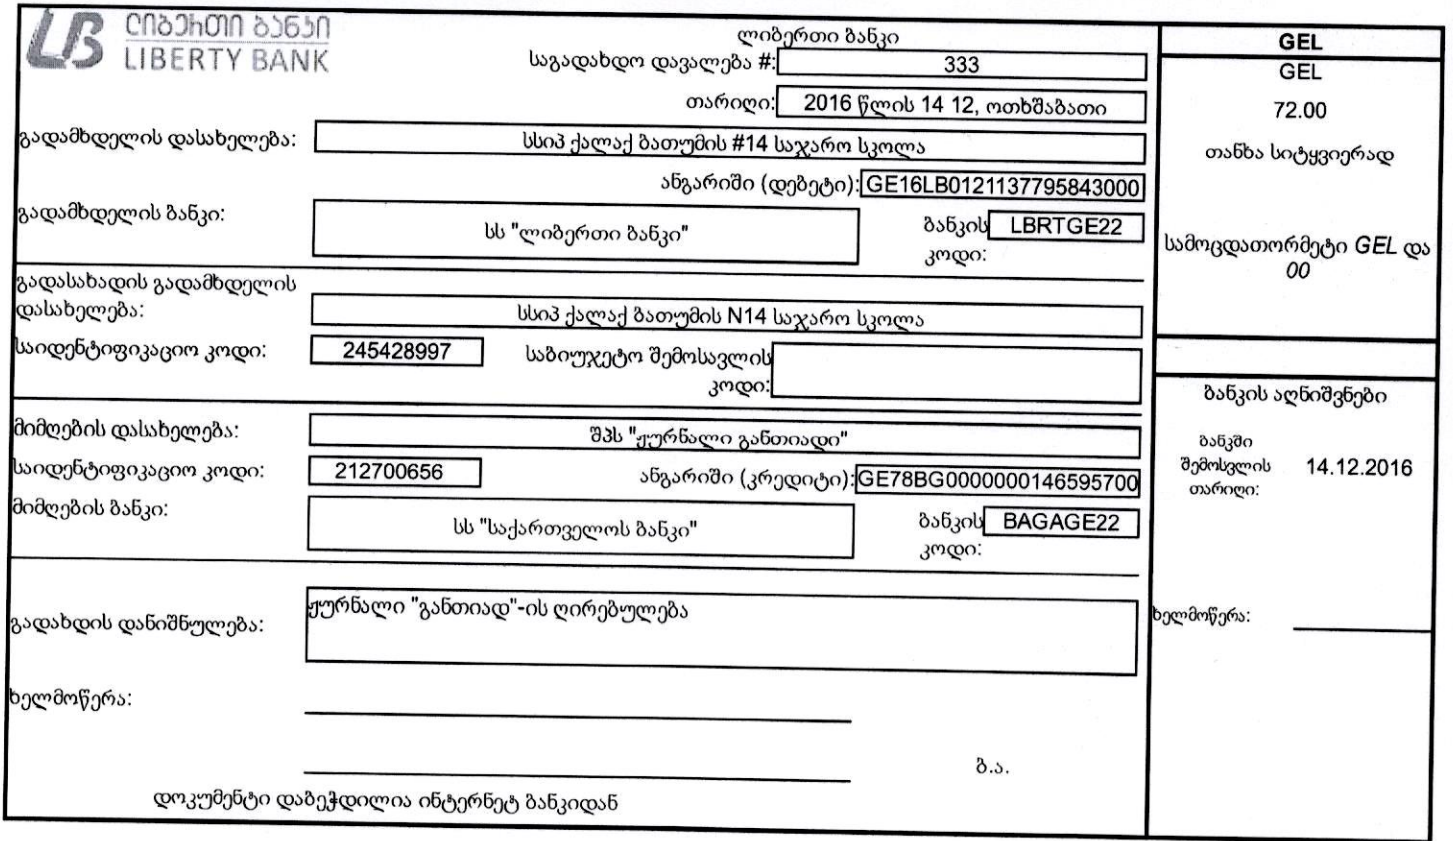 ლიბერთი ბანკი
LIBERTY BANK
ლიბერთი ბანკი
საგადახდო დავალება #: 333
თარიღი: 2016 წლის 14 12, ოთხშაბათი
გადამხდელის დასახელება: სსიპ ქალაქ ბათუმის #14 საჯარო სკოლა
ანგარიში (დებეტი): GE16LB0121137795843000
გადამხდელის ბანკი: სს "ლიბერთი ბანკი" ბანკის LBRTGE22
კოდი:
გადასახადის გადამხდელის
დასახელება: სსიპ ქალაქ ბათუმის N14 საჯარო სკოლა
საიდენტიფიკაციო კოდი: 245428997 საბიუჯეტო შემოსავლის
კოდი:
მიმღების დასახელება: შპს "ჟურნალი განთიადი"
საიდენტიფიკაციო კოდი: 212700656 ანგარიში (კრედიტი): GE78BG0000000146595700
მიმღების ბანკი: სს "საქართველოს ბანკი" ბანკის BAGAGE22
კოდი:
გადახდის დანიშნულება: ჟურნალი "განთიად"-ის ღირებულება
ხელმოწერა:
ბ.ა.
დოკუმენტი დაბეჭდილია ინტერნეტ ბანკიდან
GEL
GEL
72.00
თანხა სიტყვიერად
სამოცდათორმეტი GEL და
00
ბანკის აღნიშვნები
ბანკში
შემოსვლის 14.12.2016
თარიღი:
ხელმოწერა: